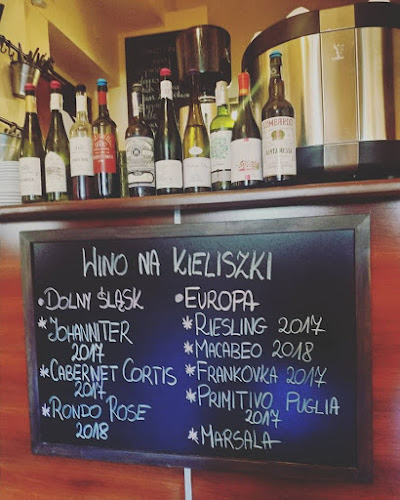 LOMBARDO
WINO NA KIELISZKI
• DOLNY ŚLĄSK
* JOHANNITER
2017
* CABERNET CORTIS
2017
* RONDO ROSE
2018
• EUROPA
* RIESLING 2017
* MACABEO 2018
* FRANKOVKA 2017
* PRIMITIVO PUGLIA
2017
* MARSALA